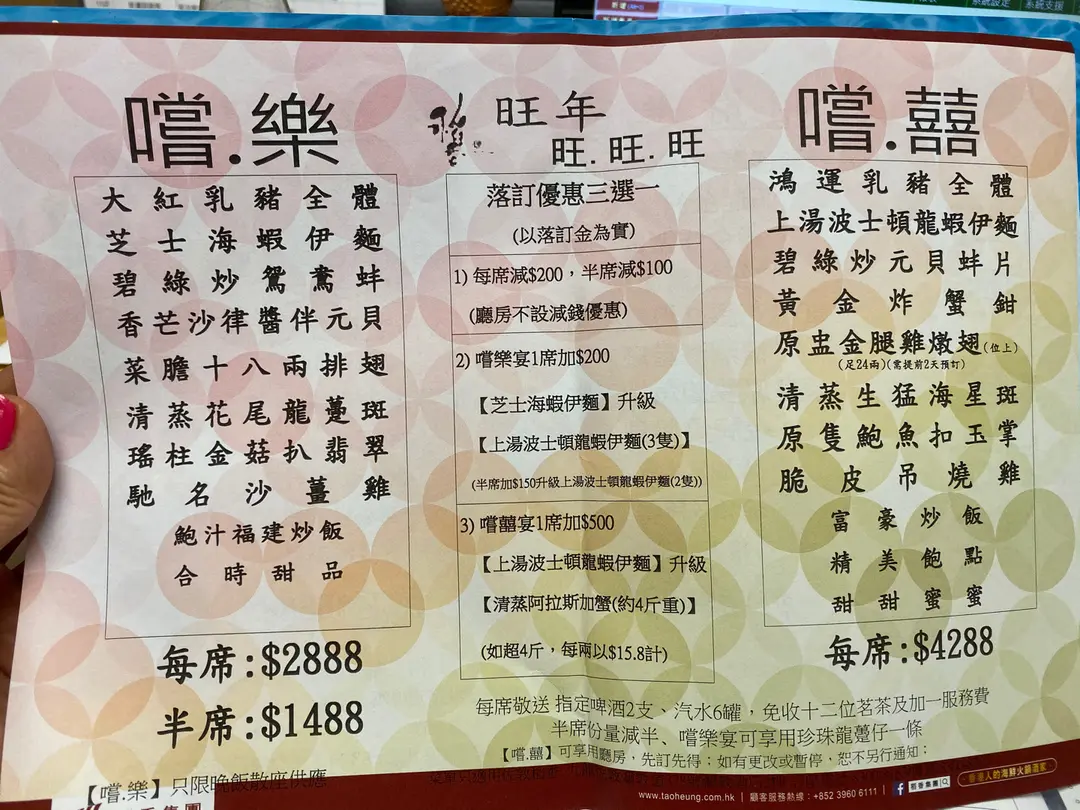 系統設定 系統支援
嚐.樂
大紅乳豬全體
芝士海蝦伊麵
碧綠炒鴛鴦蚌
香芒沙律醬伴元貝
菜膽十八兩排翅
清蒸花尾龍躉斑
瑤柱金菇扒翡翠
馳名沙薑雞
鮑汁福建炒飯
合時甜品
每席:$2888
半席:$1488
【嚐.樂】只限晚飯散座供應
旺年
旺.旺.旺
落訂優惠三選一
(以落訂金為實)
1) 每席減$200,半席減$100
(廳房不設減錢優惠)
2) 嚐樂宴1席加$200
【芝士海蝦伊麵】升級
【上湯波士頓龍蝦伊麵(3隻)】
(半席加$150升級上湯波士頓龍蝦伊麵(2隻))
3) 嚐囍宴1席加$500
【上湯波士頓龍蝦伊麵】升級
【清蒸阿拉斯加蟹(約4斤重)】
(如超4斤,每兩以$15.8計)
嚐.囍
鴻運乳豬全體
上湯波士頓龍蝦伊麵
碧綠炒元貝蚌片
黃金炸蟹鉗
原盅金腿雞燉翅(位上)
(足24兩)(需提前2天預訂)
清蒸生猛海星斑
原隻鮑魚扣玉掌
脆皮吊燒雞
富豪炒飯
精美飽點
甜甜蜜蜜
每席:$4288
每席敬送 指定啤酒2支、汽水6罐,免收十二位茗茶及加一服務費
半席份量減半、嚐樂宴可享用珍珠龍躉仔一條
【嚐.囍】可享用廳房,先訂先得;如有更改或暫停,恕不另行通知;
www.taoheung.com.hk | 顧客服務熱線:+852 3960 6111 | 稻香集團
香港人的海鮮火鍋酒家